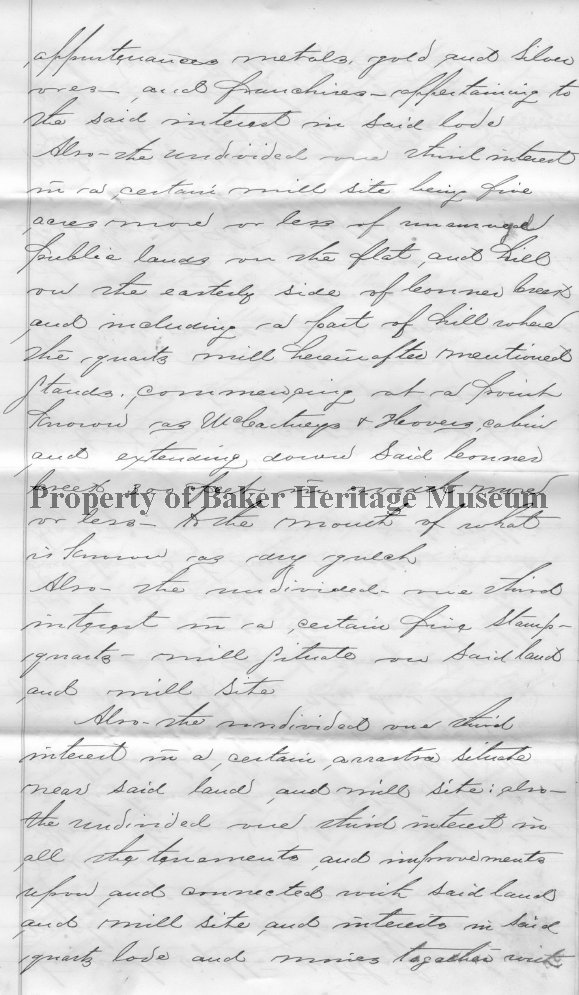 appurtenances metals, gold and silver
ores – and franchises – appertaining to
the said interest in said lode
Also – the undivided one third interest
in a certain mill site being five
acres more or less of
public lands on the flat and hill
on the easterly side of Conner Creek
and including a part of hill where
the quartz mill hereinafter mentioned
stands. commencing at a point
known as McCartneys & Hoovers cabin
and extending down said Conner
Creek
Property of Baker Heritage Museum
or less – to the mouth of what
is known as dry gulch
Also – the undivided – one third
interest in a certain five stamp –
quartz – mill situate on said land
and mill site
Also – the undivided one third
interest in a certain arrastra situate
near said land and mill site: also –
the undivided one third interest in
all the tenements and improvements
upon and connected with said land
and mill site and interests in said
quartz lode and mines together with